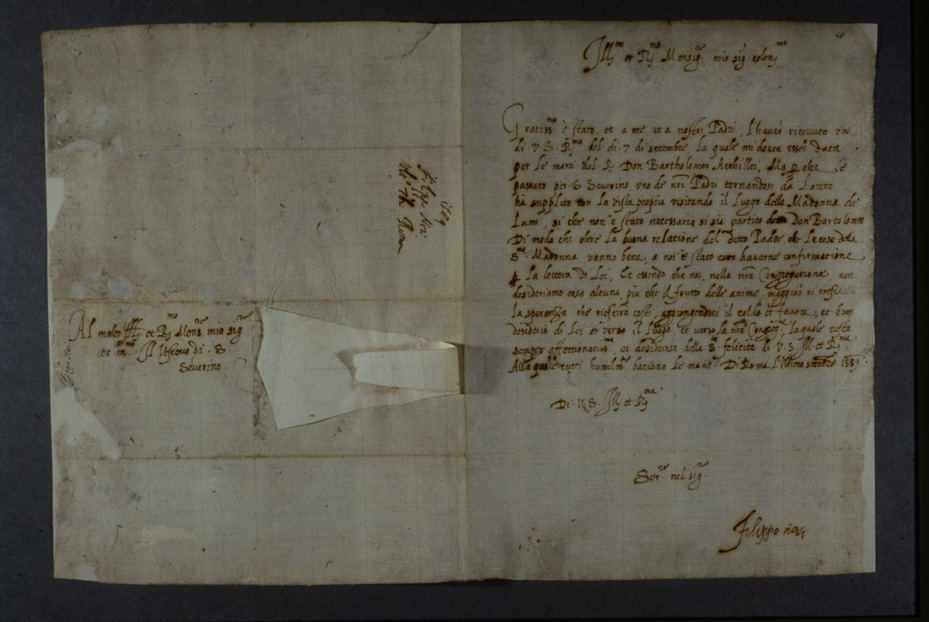 Ill.mo et R.mo Monsig.re mio sig.re colen.mo
Gratiss.mo è stato, et a me, et a nostri Padri, l'haver ricevuto una
di V. S. R.ma del di 7 di settembre, la quale mi dovea esser data
per le mani del P. Don Bartholomeo Achillei, Ma perche è
passato per S. Severino, uno de nri Padri tornandosi da Loreto
ha supplito con la vista propria visitando il luogo della Madonna de
Lumi, si che non è stato necessario si sia partito detto Don Bartolomeo
Di modo che oltre la buona relatione del detto Padre che le cose della
S.ma Madonna vanno bene, a noi è stato caro haverne confirmatione
p la lettera di Lei, Et essendo che noi, nella nra Congregatione non
desideriamo cosa alcuna, più che il frutto delle anime, maggior
la speranza che riescirà così, aggiongendoci il caldo et favore, et buon
desiderio di Lei et verso il luogo et verso la nra Congreg.ne la quale resta
semper affettionatiss.ma, et desiderosa della felicità di V. S. Ill. et R.ma
Alla quale tutti humilm.te baciamo le mane Di Roma l'ultimo settembre 1589
Di V. S. Ill. et R.ma
Ser.re nel sig.re
Filippo neri
1589
Filippo Neri
Roma
Al molto Ill. et R.mo Mons.re mio sig.re
Il Vescovo di S.
Severino